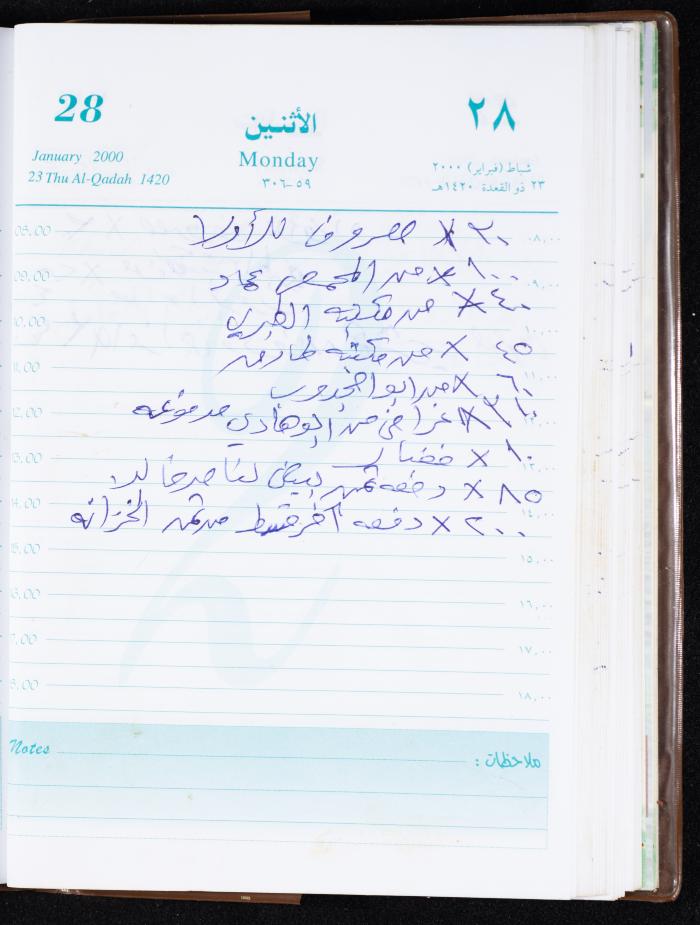 28
الأثنين
٢٨
January 2000
Monday
شباط (فبراير) ٢٠٠٠
23 Thu Al-Qadah 1420
٥٩-٣٠٦
٢٣ ذو القعدة ١٤٢٠هـ
٢٠ X مصروف للأولاد
08.00 ٠٨,٠٠
١٠٠ X من المحمص عماد
09.00 ٠٩,٠٠
٤٠٠ X من مكتبه
10.00 ١٠,٠٠
٤٥ X من مكتبه طارق
11.00 ١١,٠٠
٦٠ X من ابو
12.00 ١٢,٠٠
X اغراض من ابو هادي مدفوعه
13.00 ١٣,٠٠
١٠ X خضار
٨٥ X دفعه ثمن بيض لناصر خالد
14.00 ١٤,٠٠
٢٠٠ X دفعه آخر قسط من ثمن الخزانه
15.00 ١٥,٠٠
16.00 ١٦,٠٠
17.00 ١٧,٠٠
18.00 ١٨,٠٠
Notes ملاحظات :